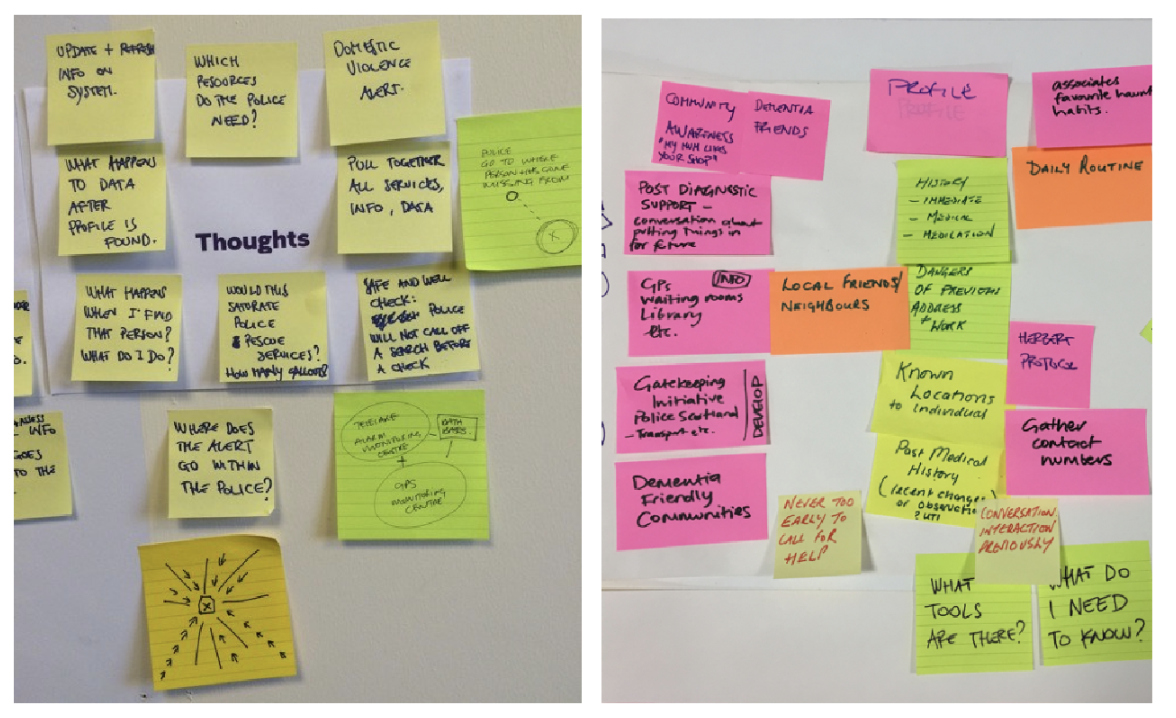 UPDATE + REFRESH
INFO ON
SYSTEM.
WHICH
RESOURCES
DO THE POLICE
NEED?
DOMESTIC
VIOLENCE
ALERT.
WHAT HAPPENS
TO DATA
AFTER
PROFILE IS
FOUND.
PULL TOGETHER
ALL SERVICES,
INFO, DATA
POLICE
GO TO WHERE
PERSON HAS GONE
MISSING FROM
K
Thoughts
WHAT HAPPENS
WHEN I FIND
THAT PERSON?
WHAT DO I DO?
WOULD THIS
SATURATE
POLICE
RESCUE
SERVICES?
HOW MANY CALLOUTS?
SAFE AND WELL
CHECK:
POLICE
WILL NOT CALL OFF
A SEARCH BEFORE
A CHECK
INFO
GOES
TO THE
WHERE DOES
THE ALERT
GO WITHIN
THE POLICE?
TELECARE
ALARM
MONITORING
CENTRE
DATA
BASES
+
GPS
MONITORING
CENTRE
X
COMMUNITY
AWARENESS
"MY MUM LIKES
YOUR SHOP"
DEMENTIA
FRIENDS
PROFILE
PROFILE
associates
favourite haunt
habits.
POST DIAGNOSTIC
SUPPORT –
conversation about
putting things in
for future
HISTORY
– IMMEDIATE
– MEDICAL
– MEDICATION
DAILY ROUTINE
GPs INFO
waiting rooms
Library
etc.
LOCAL FRIENDS/
NEIGHBOURS
DANGERS
OF PREVIOUS
ADDRESS
+ WORK
HERBERT
PROTOCOL
Gatekeeping
Initiative
Police Scotland
– Transport etc.
DEVELOP
Known
Locations
to Individual
Gather
contact
numbers
Dementia
Friendly
Communities
Past Medical
History
(recent changes)
or observation
? UTI
NEVER TOO
EARLY TO
CALL FOR
HELP
CONVERSATION
INTERACTION
PREVIOUSLY
WHAT
TOOLS
ARE THERE?
WHAT DO
I NEED
TO KNOW?